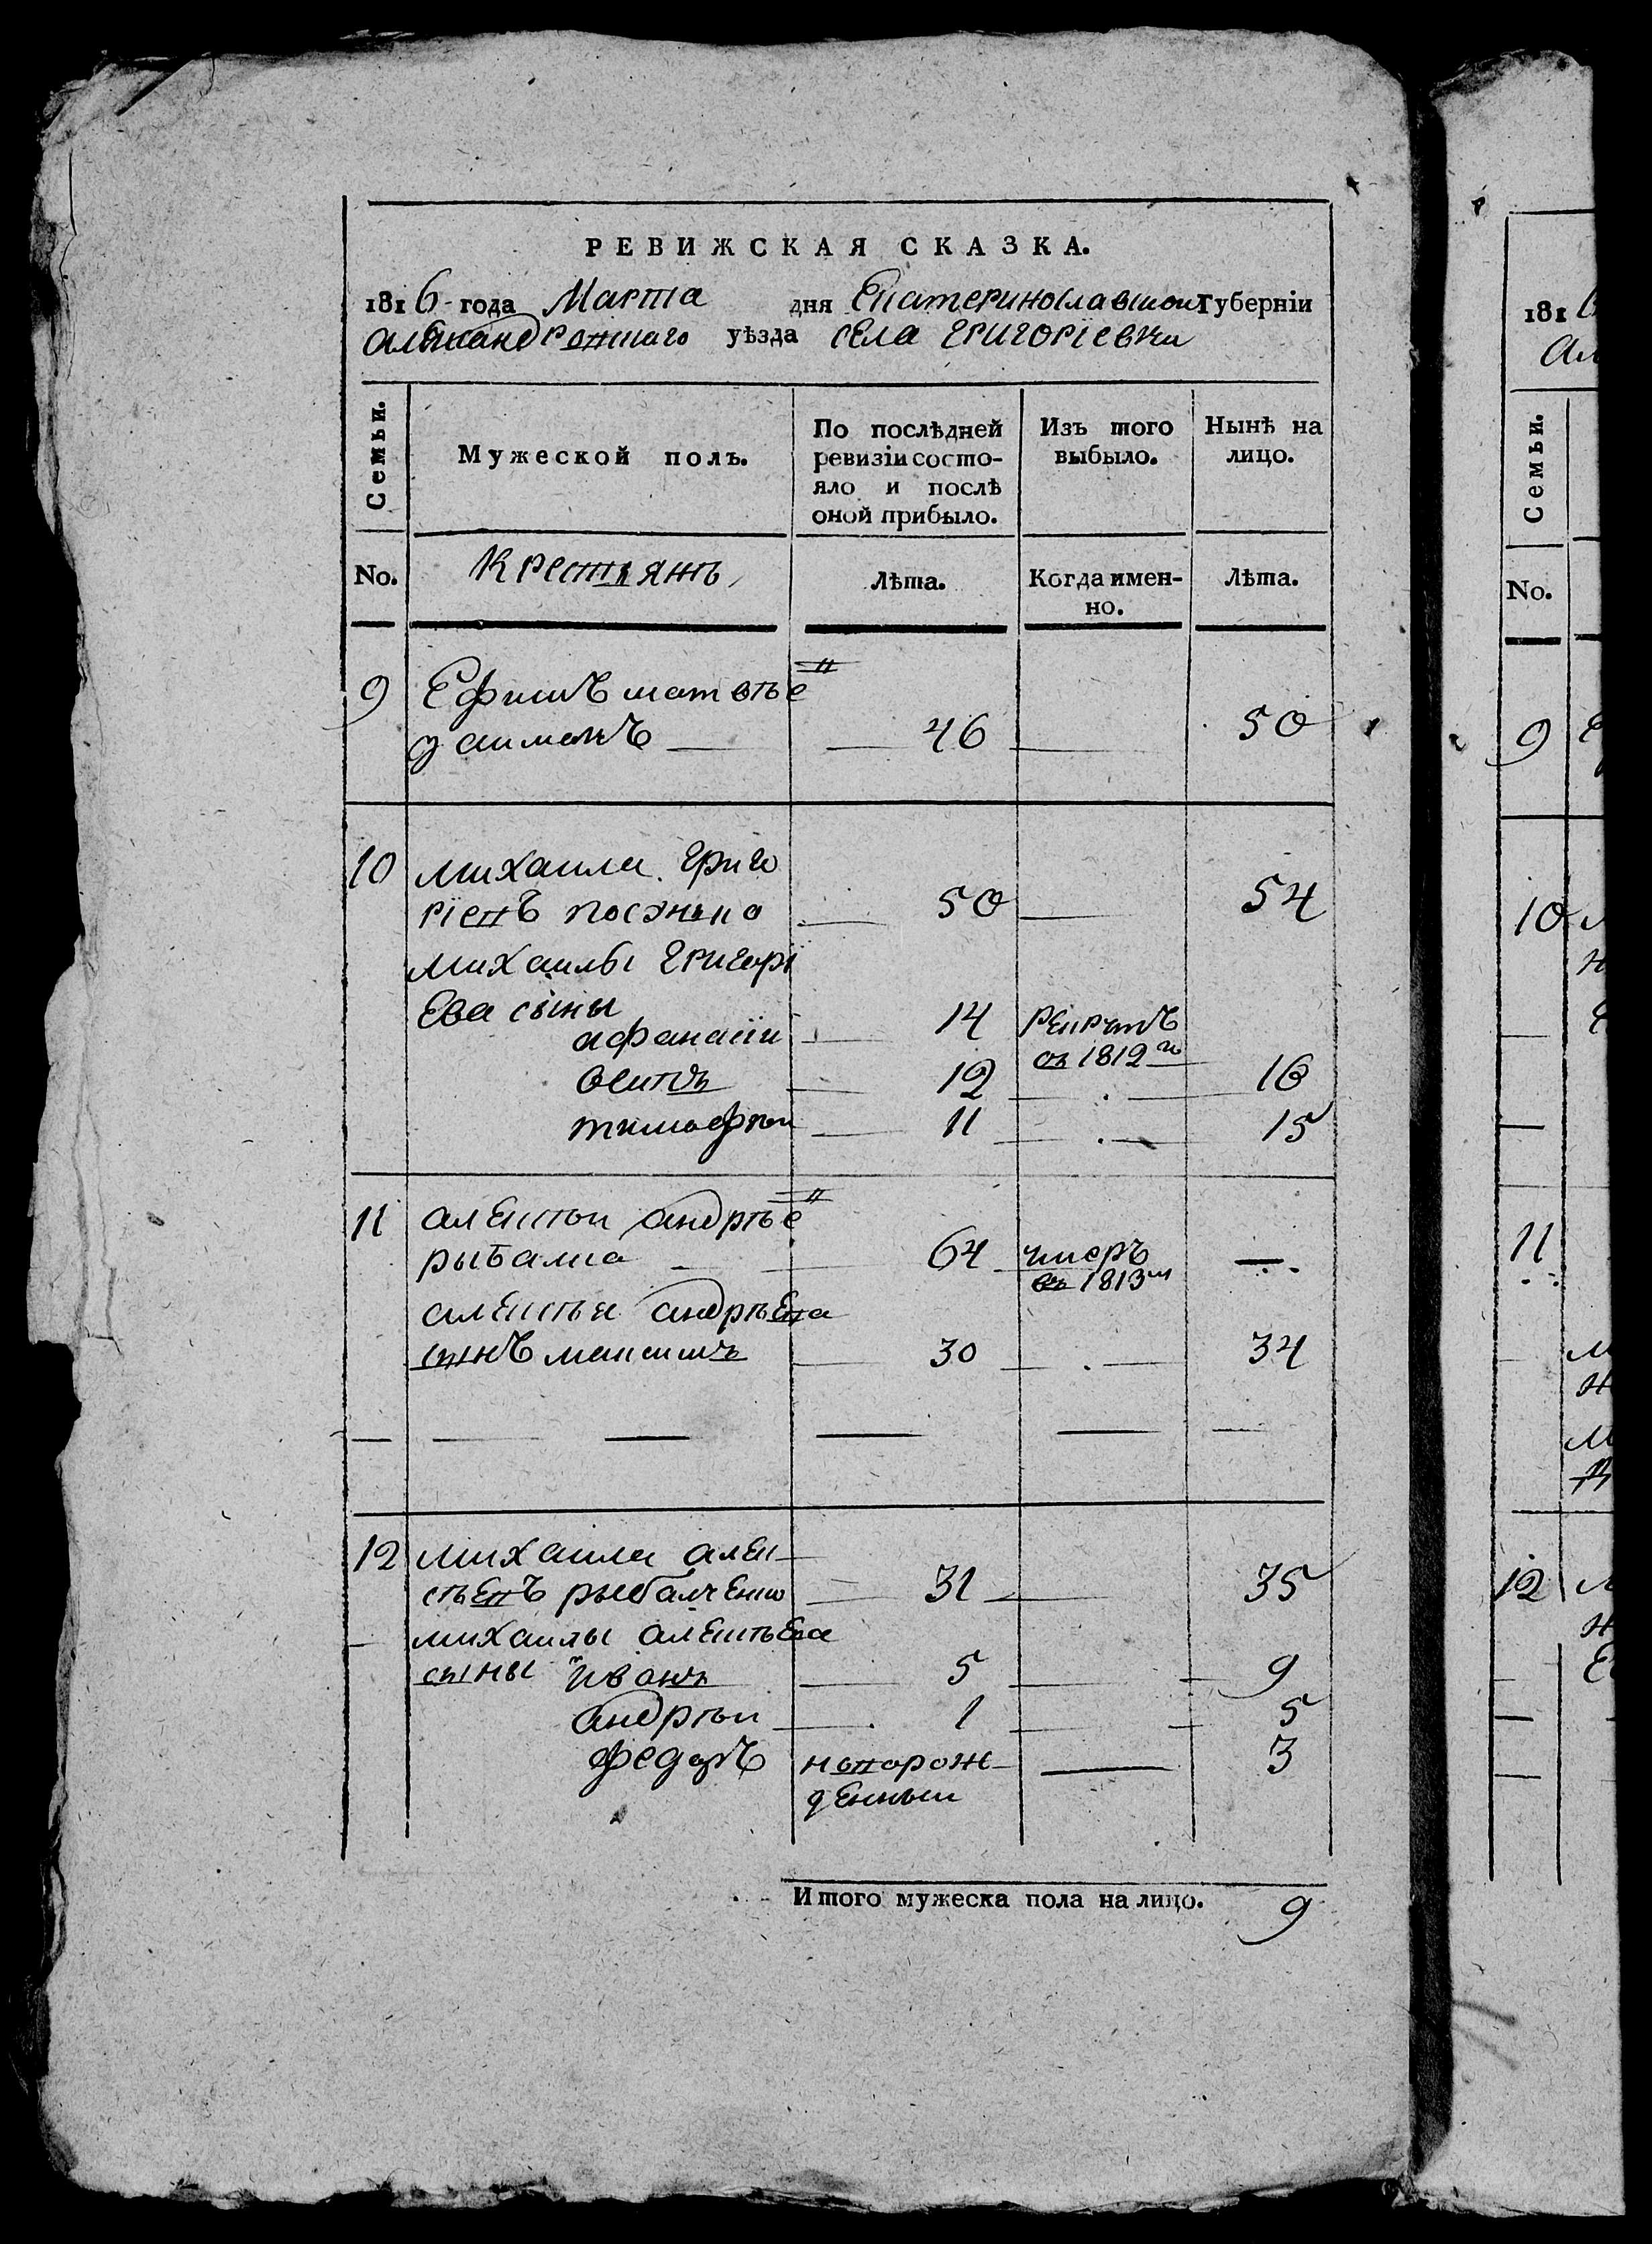 РЕВИЖСКАЯ СКАЗКА.
1816 года Марта дня Екатеринославской Губерніи
Александровскаго уѣзда села Григоріевки
Семьи.
Мужеской полъ.
По послѣдней
ревизіи состо-
яло и послѣ
оной прибыло.
Изъ того
выбыло.
Нынѣ на
лицо.
No.
Крестьянъ
Лѣта.
Когда имен-
но.
Лѣта.
9 Ефимъ матвѣе
46 50
10 михаила Григо
ріевъ 50 54
михаилы Григорі
Ева сыны
афанасіи 14 рекрутъ
въ 1812го
осипъ 12 16
тимофѣи 11 15
11 алексѣи андрѣе
рыбалка 64 умеръ —
въ 1813м
алексѣя андрѣева
сынъ максимъ 30 34
12 михаила алек
сѣевъ рыбалченко 31 35
михаилы алексѣева
сыны иванъ 5 9
андрѣи 1 5
федоръ новорож 3
денныи
Итого мужеска пола на лицо. 9
181
Семьи.
No.
9
10
11
12